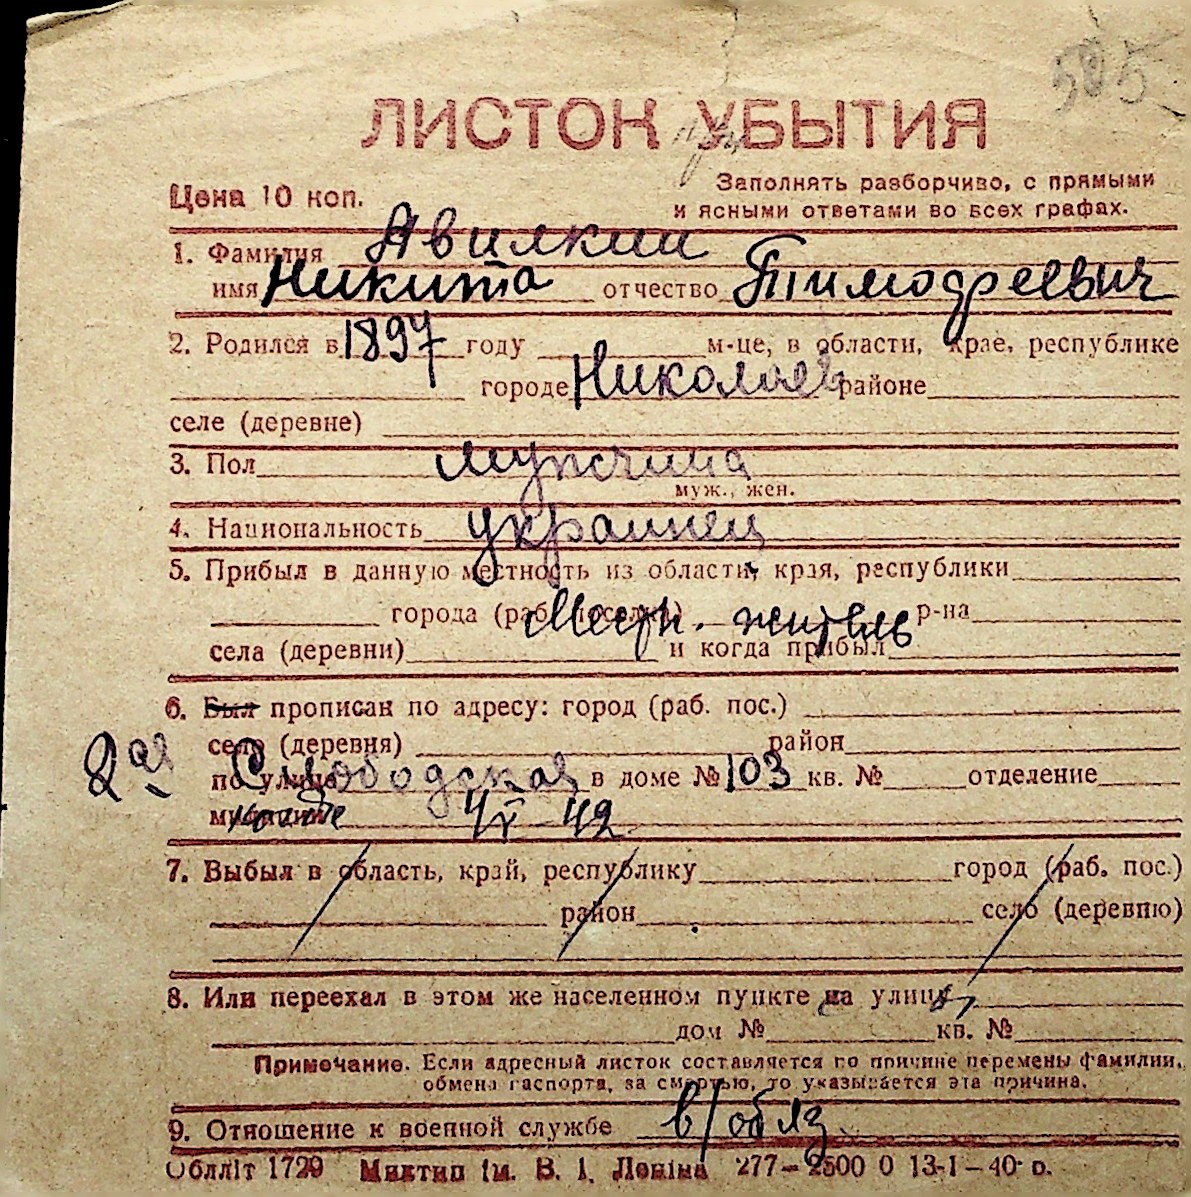 505
ЛИСТОК УБЫТИЯ
Цена 10 коп.
Заполнять разборчиво, с прямыми
и ясными ответами во всех графах.
1. Фамилия Авилкин
имя Никита отчество Тимофреевич
2. Родился в 1897 году м-це, в области, крае, республике
городе Николаев районе
селе (деревне)
3. Пол мужчина
муж., жен.
4. Национальность украинец
5. Прибыл в данную местность из области, края, республики
города (раб. поселка) Местн. житель р-на
села (деревни) и когда прибыл
6. Был прописан по адресу: город (раб. пос.)
село (деревня) район
2ая по улице Слободская в доме № 103 кв. № отделение
милиции 4/V 42
7. Выбыл в область, край, республику город (раб. пос.)
район село (деревню)
8. Или переехал в этом же населенном пункте на улицу
дом № кв. №
Примечание. Если адресный листок составляется по причине перемены фамилии,
обмена паспорта, за смертью, то указывается эта причина.
9. Отношение к военной службе в/обяз.
Обліт 1729 Миктип ім. В. І. Леніна 277—2500 0 13-I—40 р.